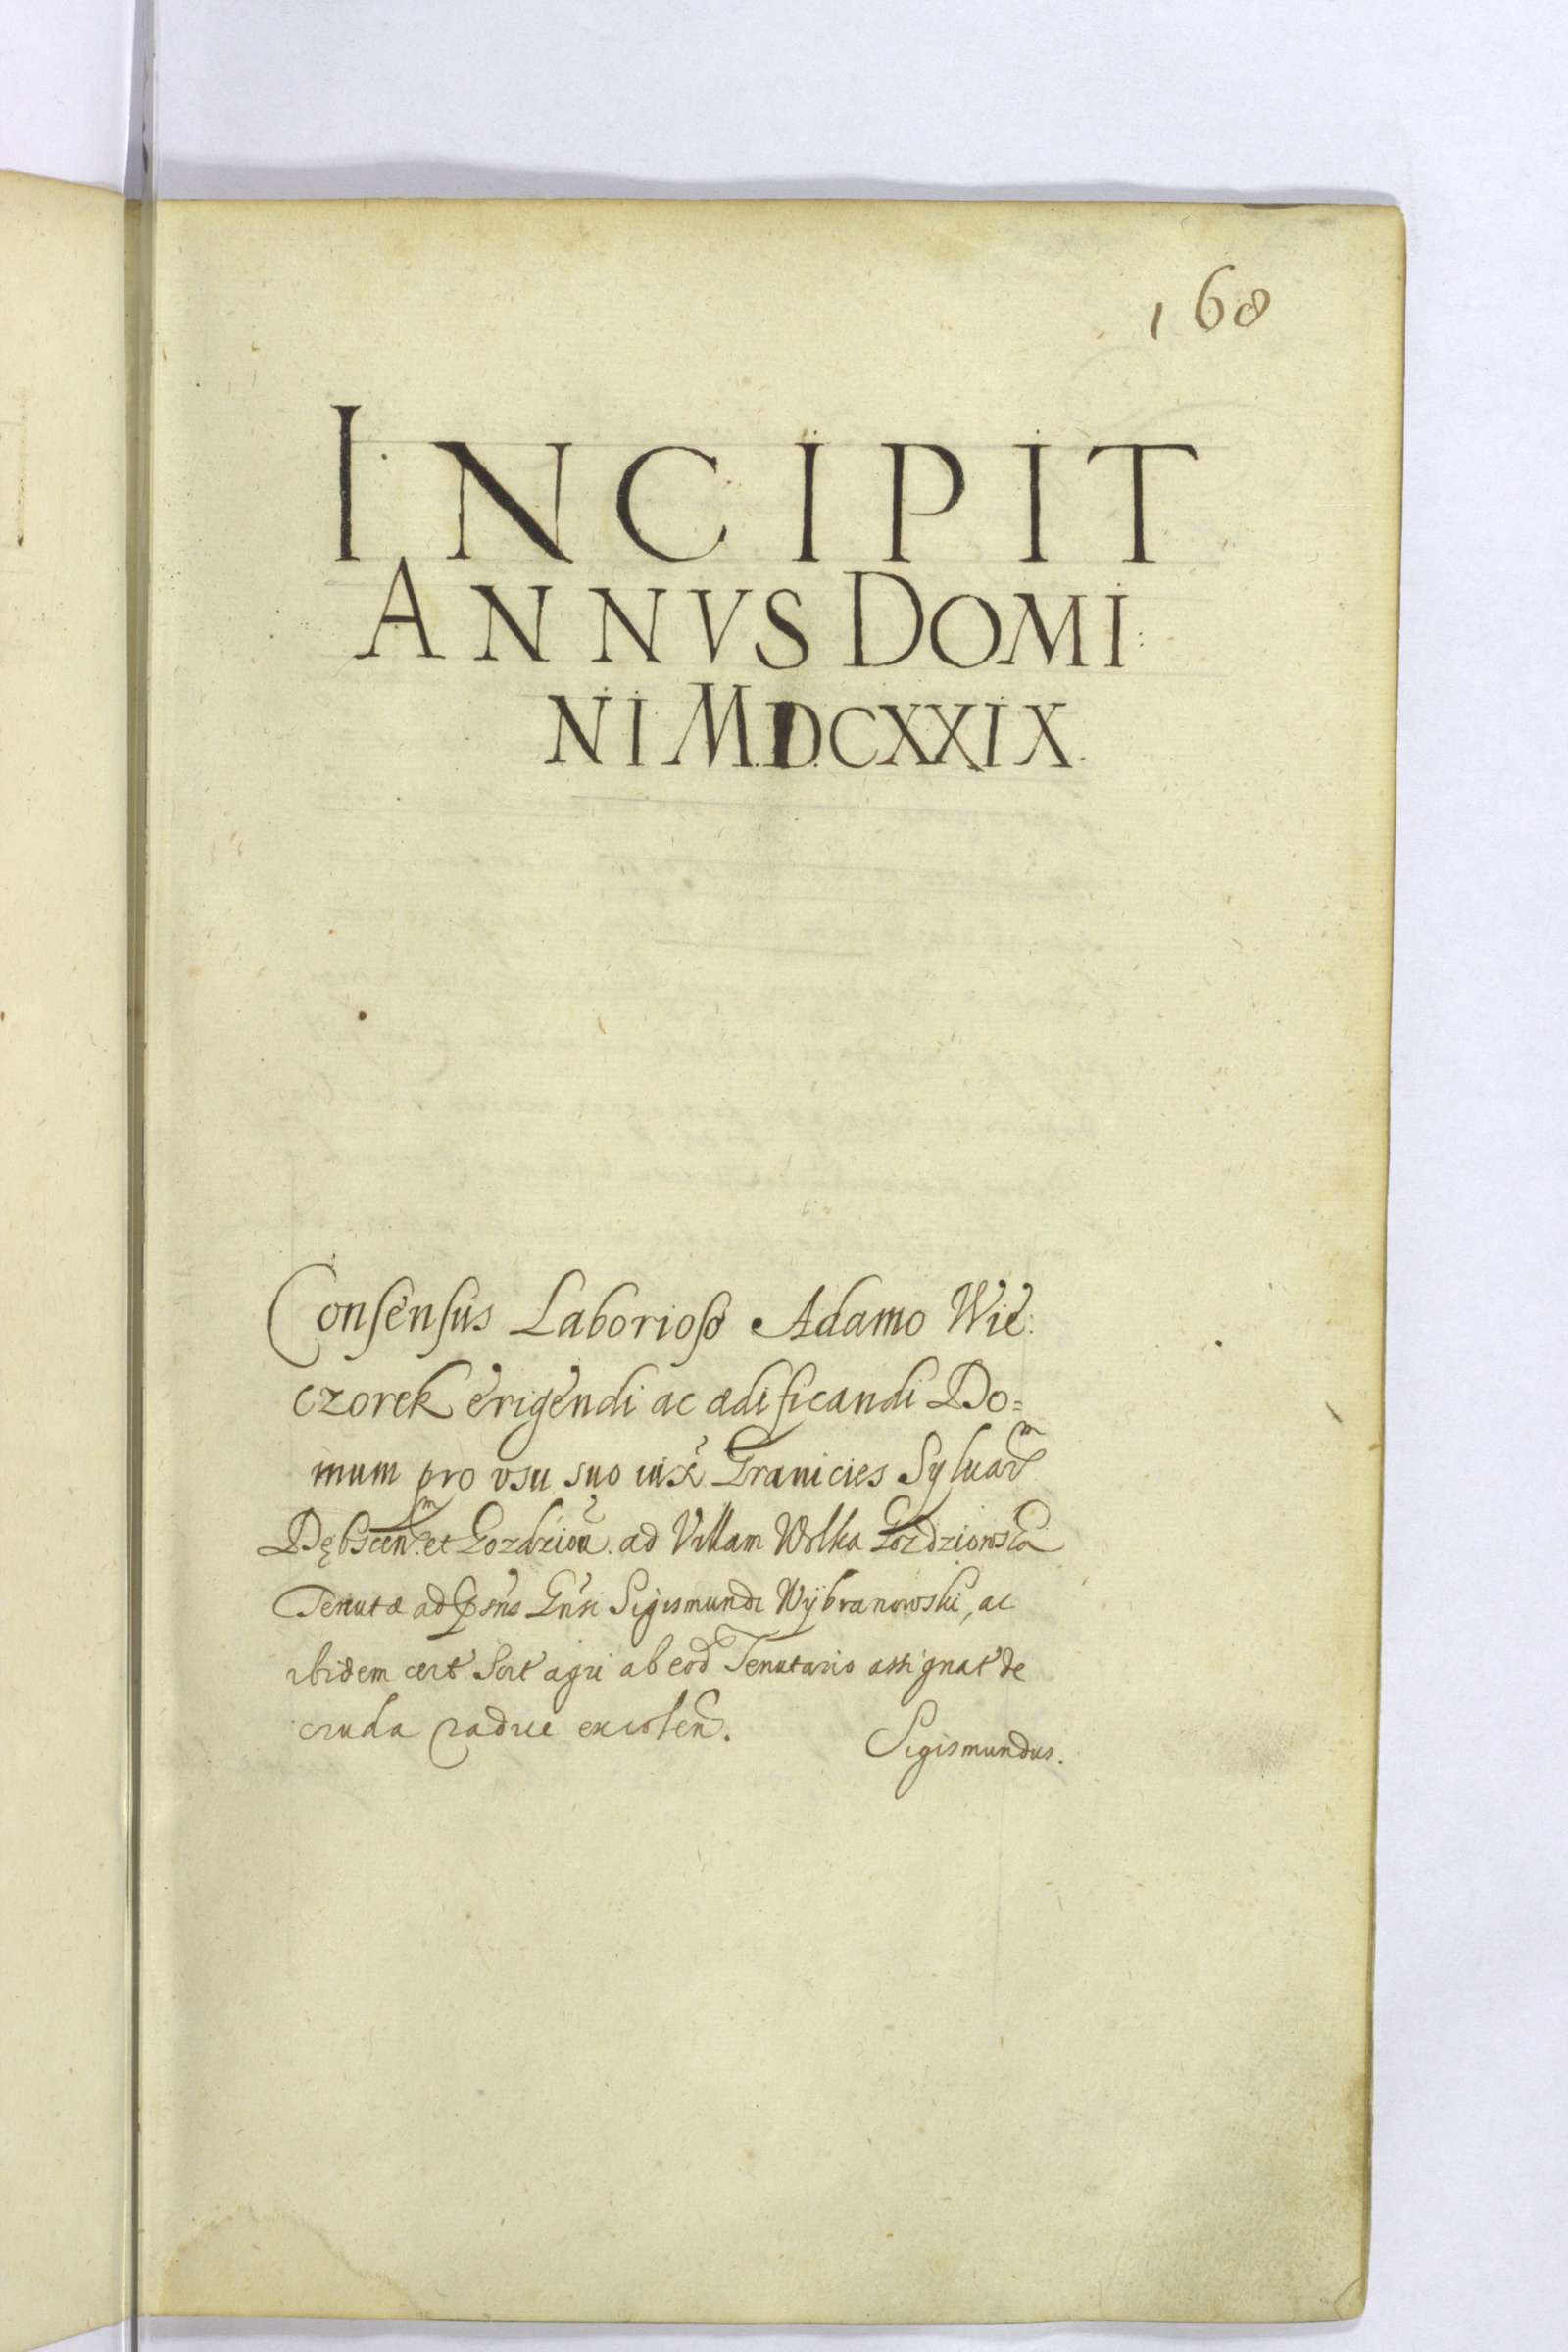 168
INCIPIT
ANNVS DOMI:
NI M.D.CXXIX.
Consensus Laborioso Adamo Wie:
czorek erigendi ac ædificandi Do=
mum pro vsu suo iuxẽ Granicies Syluarm̃
Dębscen. et Gozdziou. ad Villam Wolka Gozdziowska
Tenutæ ad p̃sñs Gñsi Sigismundi Wÿbranowski, ac
ibidem cert Sort agri ab eod Tenutario assignat de
cruda radice excolen.
Sigismundus.